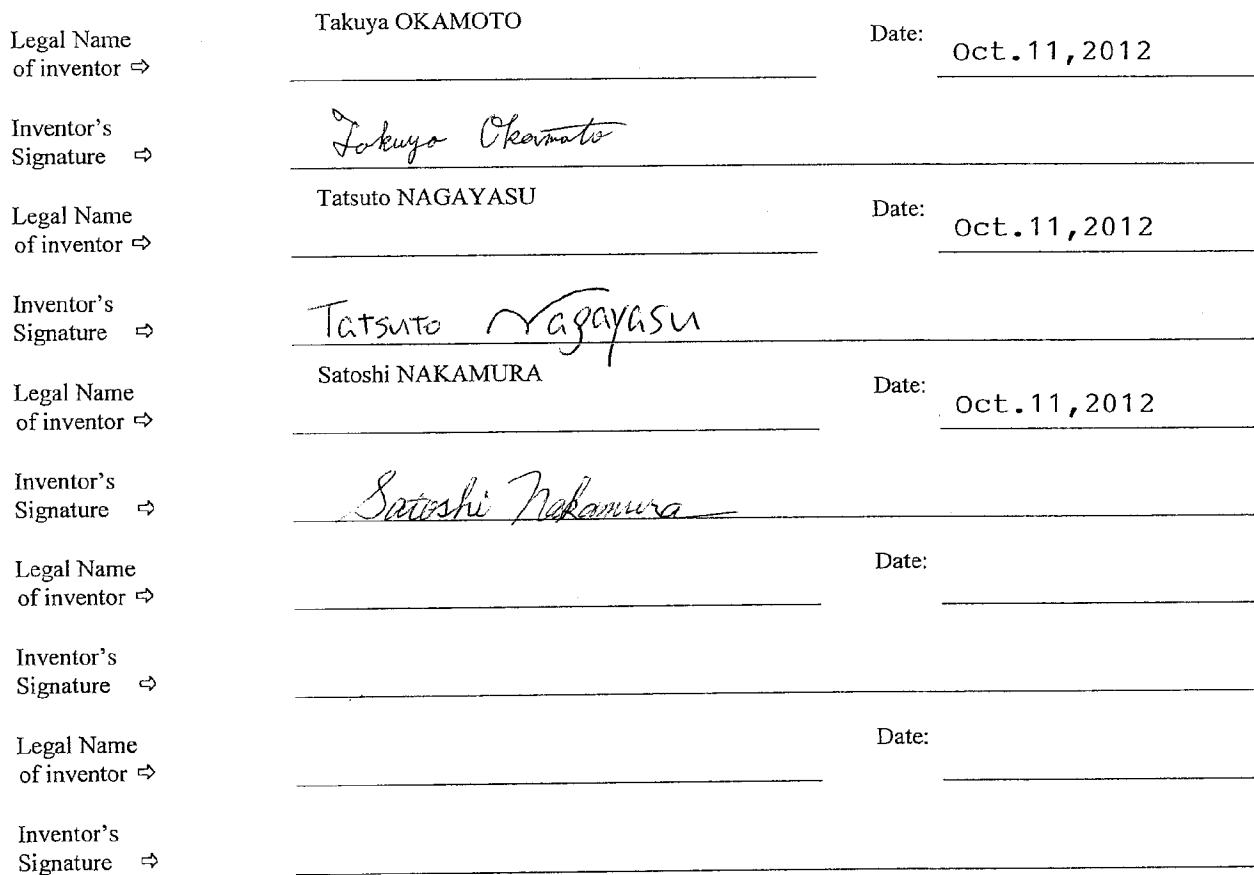 Legal Name
of inventor ⇨
Takuya OKAMOTO
Date:
Oct.11,2012
Inventor's
Signature ⇨
Takuya Okamoto
Legal Name
of inventor ⇨
Tatsuto NAGAYASU
Date:
Oct.11,2012
Inventor's
Signature ⇨
Tatsuto Nagayasu
Legal Name
of inventor ⇨
Satoshi NAKAMURA
Date:
Oct.11,2012
Inventor's
Signature ⇨
Satoshi Nakamura
Legal Name
of inventor ⇨
Date:
Inventor's
Signature ⇨
Legal Name
of inventor ⇨
Date:
Inventor's
Signature ⇨